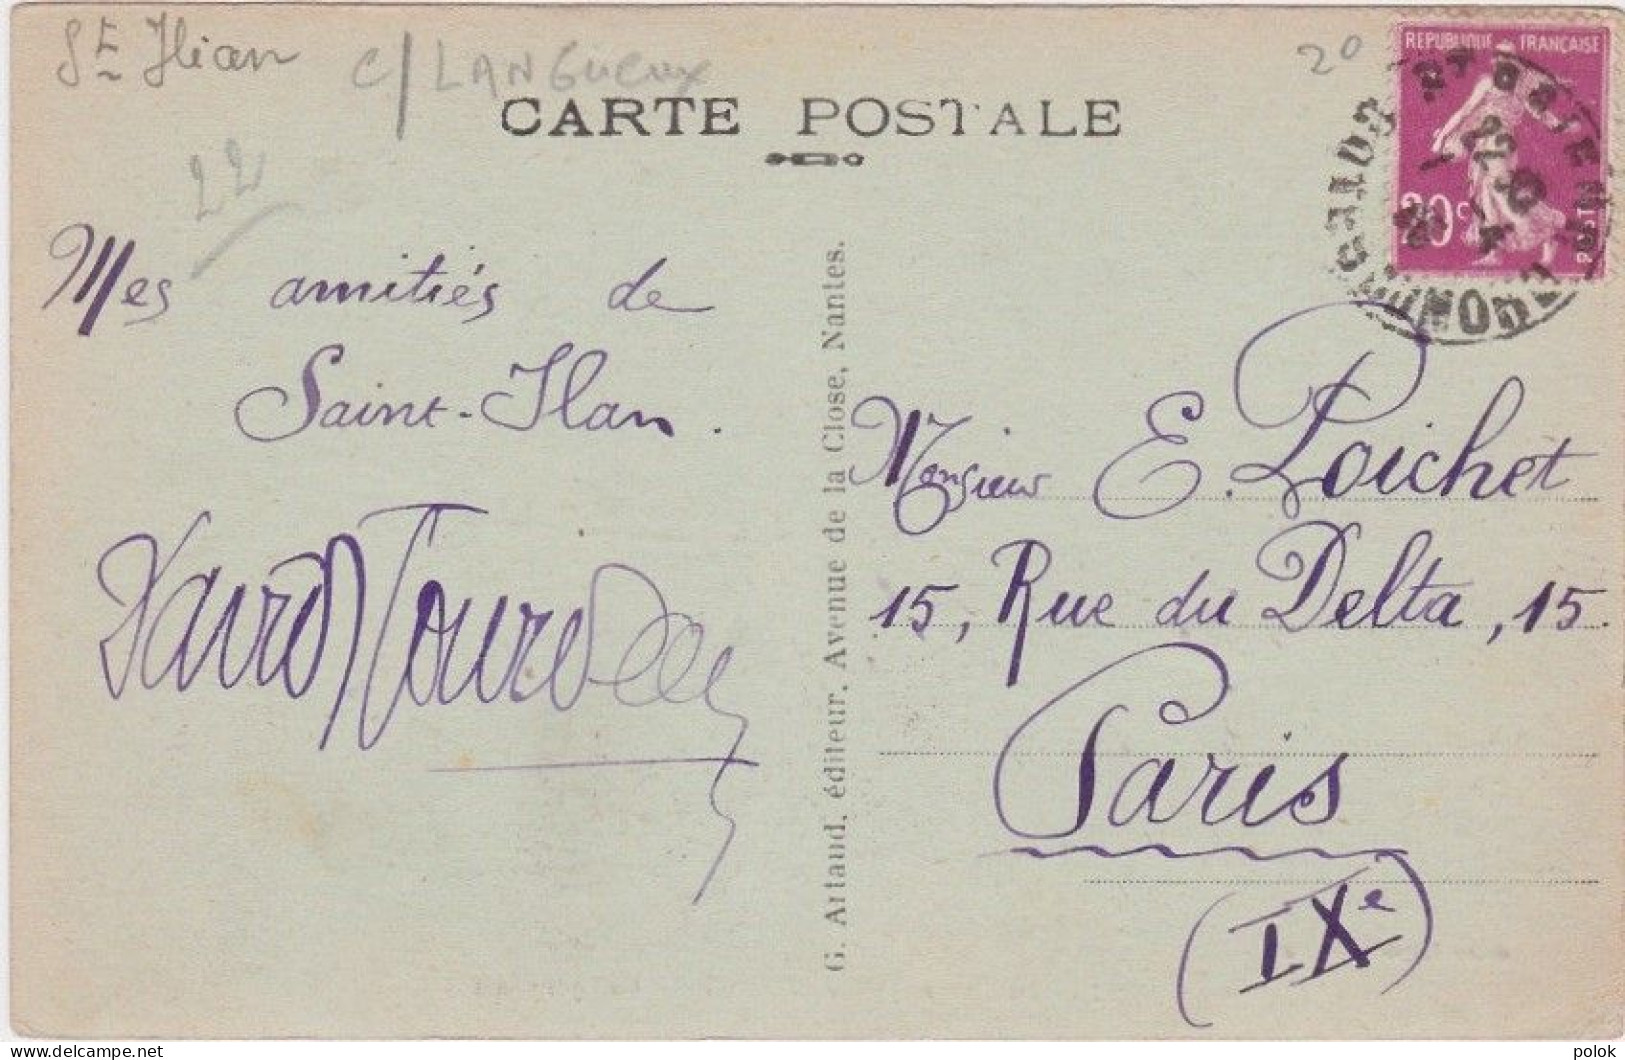 St Ilian
C/LANGUEUX
20
22
CARTE POSTALE
REPUBLIQUE FRANÇAISE
20c
POSTES
Mes amitiés de
Saint-Ilan.
G. Artaud, éditeur, Avenue de la Close, Nantes.
Monsieur E. Poichet
15, Rue du Delta, 15.
Paris
(IXe)
delcampe.net
polok